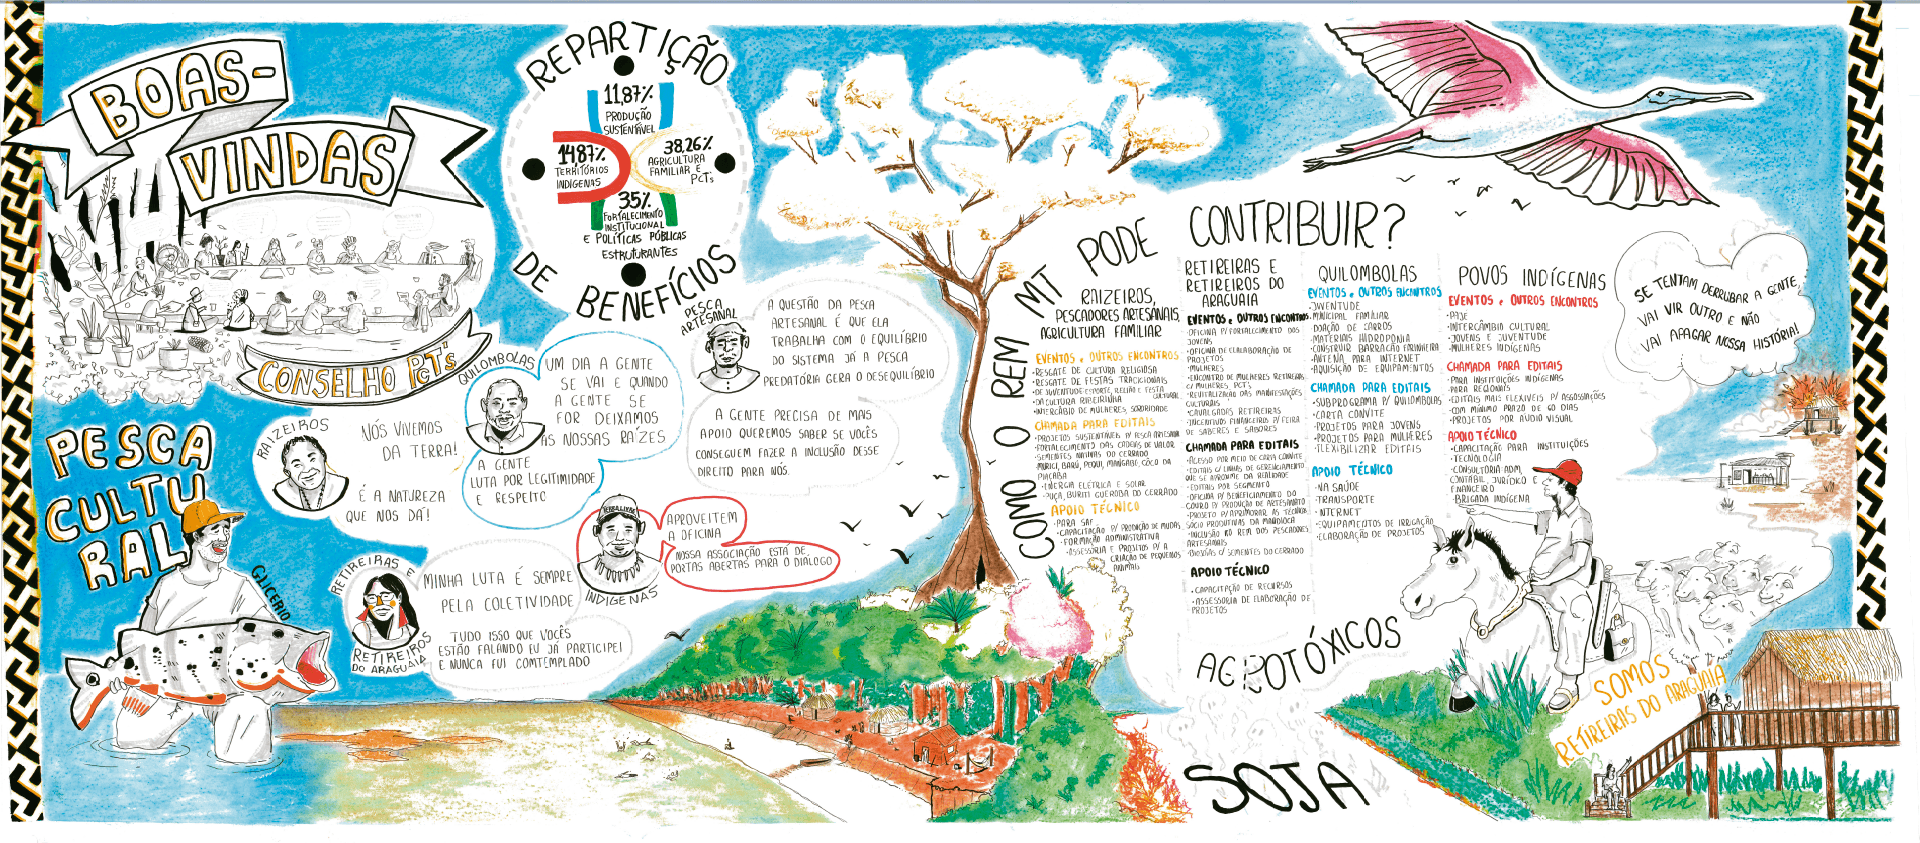 BOAS-
VINDAS
CONSELHO PCT's
PESCA
CULTU
RAL
GLICERIO
REPARTIÇÃO
DE BENEFÍCIOS
11,87%
PRODUÇÃO
SUSTENTÁVEL
14,87%
TERRITÓRIOS
INDÍGENAS
38,26%
AGRICULTURA
FAMILIAR E
PCT's
35%
FORTALECIMENTO
INSTITUCIONAL
E POLÍTICAS PÚBLICAS
ESTRUTURANTES
RAIZEIROS
NÓS VIVEMOS
DA TERRA!
É A NATUREZA
QUE NOS DÁ!
QUILOMBOLAS
UM DIA A GENTE
SE VAI E QUANDO
A GENTE SE
FOR DEIXAMOS
AS NOSSAS RAÍZES
A GENTE
LUTA POR LEGITIMIDADE
E RESPEITO
PESCA
ARTESANAL
A QUESTÃO DA PESCA
ARTESANAL É QUE ELA
TRABALHA COM O EQUILÍBRIO
DO SISTEMA JÁ A PESCA
PREDATÓRIA GERA O DESEQUILÍBRIO
A GENTE PRECISA DE MAIS
APOIO QUEREMOS SABER SE VOCÊS
CONSEGUEM FAZER A INCLUSÃO DESSE
DIREITO PARA NÓS.
INDÍGENAS
APROVEITEM
A OFICINA
NOSSA ASSOCIAÇÃO ESTÁ DE
PORTAS ABERTAS PARA O DIÁLOGO
RETIREIRAS E
RETIREIROS
DO ARAGUAIA
MINHA LUTA É SEMPRE
PELA COLETIVIDADE
TUDO ISSO QUE VOCÊS
ESTÃO FALANDO EU JÁ PARTICIPEI
E NUNCA FUI COMTEMPLADO
COMO O REM MT PODE CONTRIBUIR?
RAIZEIROS,
PESCADORES ARTESANAIS,
AGRICULTURA FAMILIAR
EVENTOS e OUTROS ENCONTROS
•RESGATE DE CULTURA RELIGIOSA
•RESGATE DE FESTAS TRADICIONAIS
•DE JUVENTUDE-ESPORTE, RELIGIÃO E FESTA CULTURAL
•DA CULTURA RIBEIRINHA
•INTERCÂBIO DE MULHERES, SORORIDADE
CHAMADA PARA EDITAIS
•PROJETOS SUSTENTÁVEIS P/ PESCA ARTESANAL
•FORTALECIMENTO DAS CADEIAS DE VALOR
•SEMENTES NATIVAS DO CERRADO
MURICI, BARU, PEQUI, MANGABA, COCO DA
PIAÇABA
•ENERGIA ELÉTRICA E SOLAR
•PUÇA, BURITI GUEROBA DO CERRADO
APOIO TÉCNICO
•PARA SAF
•CAPACITAÇÃO P/ PRODUÇÃO DE MUDAS
•FORMAÇÃO ADMINISTRATIVA
•ASSESSORIA E PROJETOS P/ A
CRIAÇÃO DE PEQUENOS
ANIMAIS
RETIREIRAS E
RETIREIROS DO
ARAGUAIA
EVENTOS e OUTROS ENCONTROS
•OFICINA P/ FORTALECIMENTO DOS
JOVENS
•OFICINA DE ELABORAÇÃO DE
PROJETOS
•MULHERES
•ENCONTRO DE MULHERES RETIREIRAS
C/ MULHERES PCT's
•REVITALIZAÇÃO DAS MANIFESTAÇÕES
CULTURAIS
•CAVALGADAS RETIREIRAS
•INCENTIVOS FINANCEIROS P/ FEIRA
DE SABERES E SABORES
CHAMADA PARA EDITAIS
•ACESSO POR MEIO DE CARTA CONVITE
•EDITAIS C/ LINHAS DE GERENCIAMENTO
QUE SE APROXIME DA REALIDADE
•EDITAIS POR SEGMENTO
•OFICINA P/ BENEFICIAMENTO DO
COURO P/ PRODUÇÃO DE ARTESANATO
•PROJETO P/ APRIMORAR AS TÉCNICAS
SÓCIO PRODUTIVAS DA MANDIOCA
•INCLUSÃO NO REM DOS PESCADORES
ARTESANAIS
•BIOJÓIAS C/ SEMENTES DO CERRADO
APOIO TÉCNICO
•CAPACITAÇÃO DE RECURSOS
•ASSESSORIA DE ELABORAÇÃO DE
PROJETOS
QUILOMBOLAS
EVENTOS e OUTROS ENCONTROS
•JUVENTUDE
•MUNICIPAL FAMILIAR
•DOAÇÃO DE CARROS
•MATERIAIS HIDROPONIA
•CONSTRUIR BARRACÃO FARINHEIRA
•ANTENA PARA INTERNET
•AQUISIÇÃO DE EQUIPAMENTOS
CHAMADA PARA EDITAIS
•SUBPROGRAMA P/ QUILOMBOLAS
•CARTA CONVITE
•PROJETOS PARA JOVENS
•PROJETOS PARA MULHERES
•FLEXIBILIZAR EDITAIS
APOIO TÉCNICO
•NA SAÚDE
•TRANSPORTE
•INTERNET
•EQUIPAMENTOS DE IRRIGAÇÃO
•ELABORAÇÃO DE PROJETOS
POVOS INDÍGENAS
EVENTOS e OUTROS ENCONTROS
•PAJÉ
•INTERCÂMBIO CULTURAL
•JOVENS E JUVENTUDE
•MULHERES INDÍGENAS
CHAMADA PARA EDITAIS
•PARA INSTITUIÇÕES INDÍGENAS
•PARA REGIONAIS
•EDITAIS MAIS FLEXÍVEIS P/ ASSOSSIAÇÕES
•COM MÍNIMO PRAZO DE 60 DIAS
•PROJETOS POR ÁUDIO VISUAL
APOIO TÉCNICO
•CAPACITAÇÃO PARA INSTITUIÇÕES
•TECNOLOGIA
•CONSULTORIA ADM,
CONTÁBIL, JURÍDICO E
FINANCEIRO
•BRIGADA INDÍGENA
SE TENTAM DERRUBAR A GENTE,
VAI VIR OUTRO E NÃO
VAI APAGAR NOSSA HISTÓRIA!
AGROTÓXICOS
SOJA
SOMOS
RETIREIRAS DO ARAGUAIA